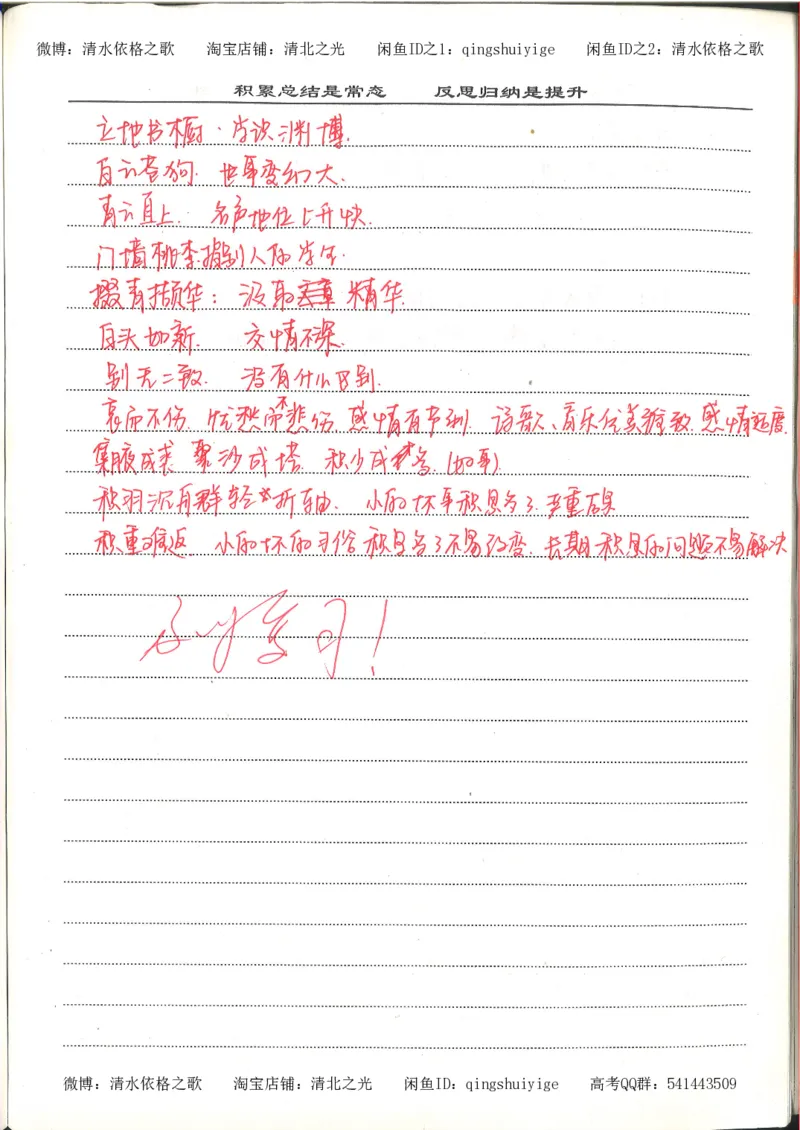 微博：清水依格之歌 淘宝店铺：清北之光 闲鱼ID之1：qingshuiyige 闲鱼ID之2：清水依格之歌
积累总结是常态 反思归纳是提升
立地书橱·学识渊博.
白云苍狗. 世事变幻大.
青云直上. 名声地位上升快.
门墙桃李.指别人的学生.
掇青撷华：汲取 精华.
白头如新. 交情不深.
别无二致. 没有什么区别.
哀而不伤. 忧愁而不悲伤. 感情有节制. 诗歌、音乐优美雅致.感情适度.
集腋成裘 聚沙成塔. 积少成多.(好事).
积羽沉舟群轻折轴. 小的坏事积累多了.严重后果
积重难返. 小的坏的习俗积累多了不易改变. 长期积累的问题不易解决
学习！
微博：清水依格之歌 淘宝店铺：清北之光 闲鱼ID：qingshuiyige 高考QQ群：541443509